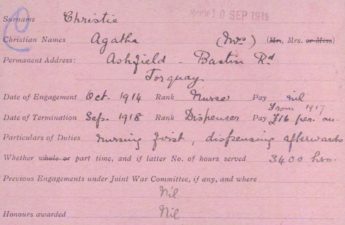 10 SEP 1918
Surname Christie
Christian Names Agatha (Mrs) (Mr, Mrs. or Miss)
Permanent Address: Ashfield - Barton Rd
Torquay.
Date of Engagement Oct. 1914 Rank Nurse Pay nil
From 1917
Date of Termination Sep. 1918 Rank Dispenser Pay £16 per. an
Particulars of Duties Nursing first, dispensing afterwards
Whether whole or part time, and if latter No. of hours served 3400 hrs.
Previous Engagements under Joint War Committee, if any, and where
Nil
Honours awarded Nil